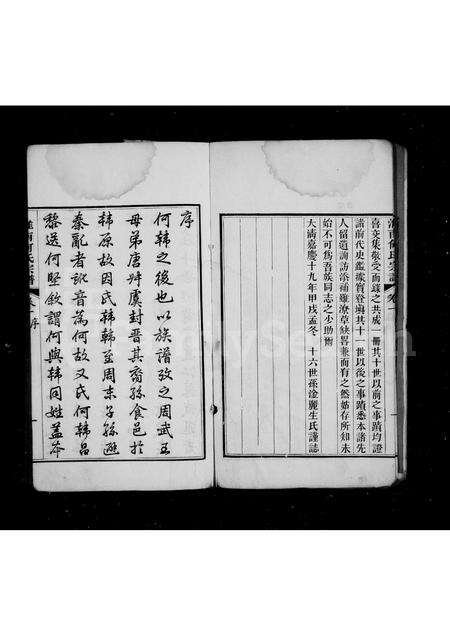 喜交集敬受而錄之共成一冊其十世以前之事蹟均證
諸前代史鑑據實登載其十一世以後之事蹟悉本諸先
人留遺詢訪添補雖潦草缺畧兼而有之然姑存所知未
始不可爲吾族同志之少助爾
大淸嘉慶十九年甲戌孟冬 十六世孫淦麗生氏謹誌
序
何韓之後也以族譜攷之周武王
母弟唐叔虞封晋其裔孫食邑於
韓原故因氏韓韓至周末子孫遯
秦亂者訛音爲何故又氏何韓昌
黎送何堅敘謂何與韓同姓蓋本
南何氏宗譜 卷 序